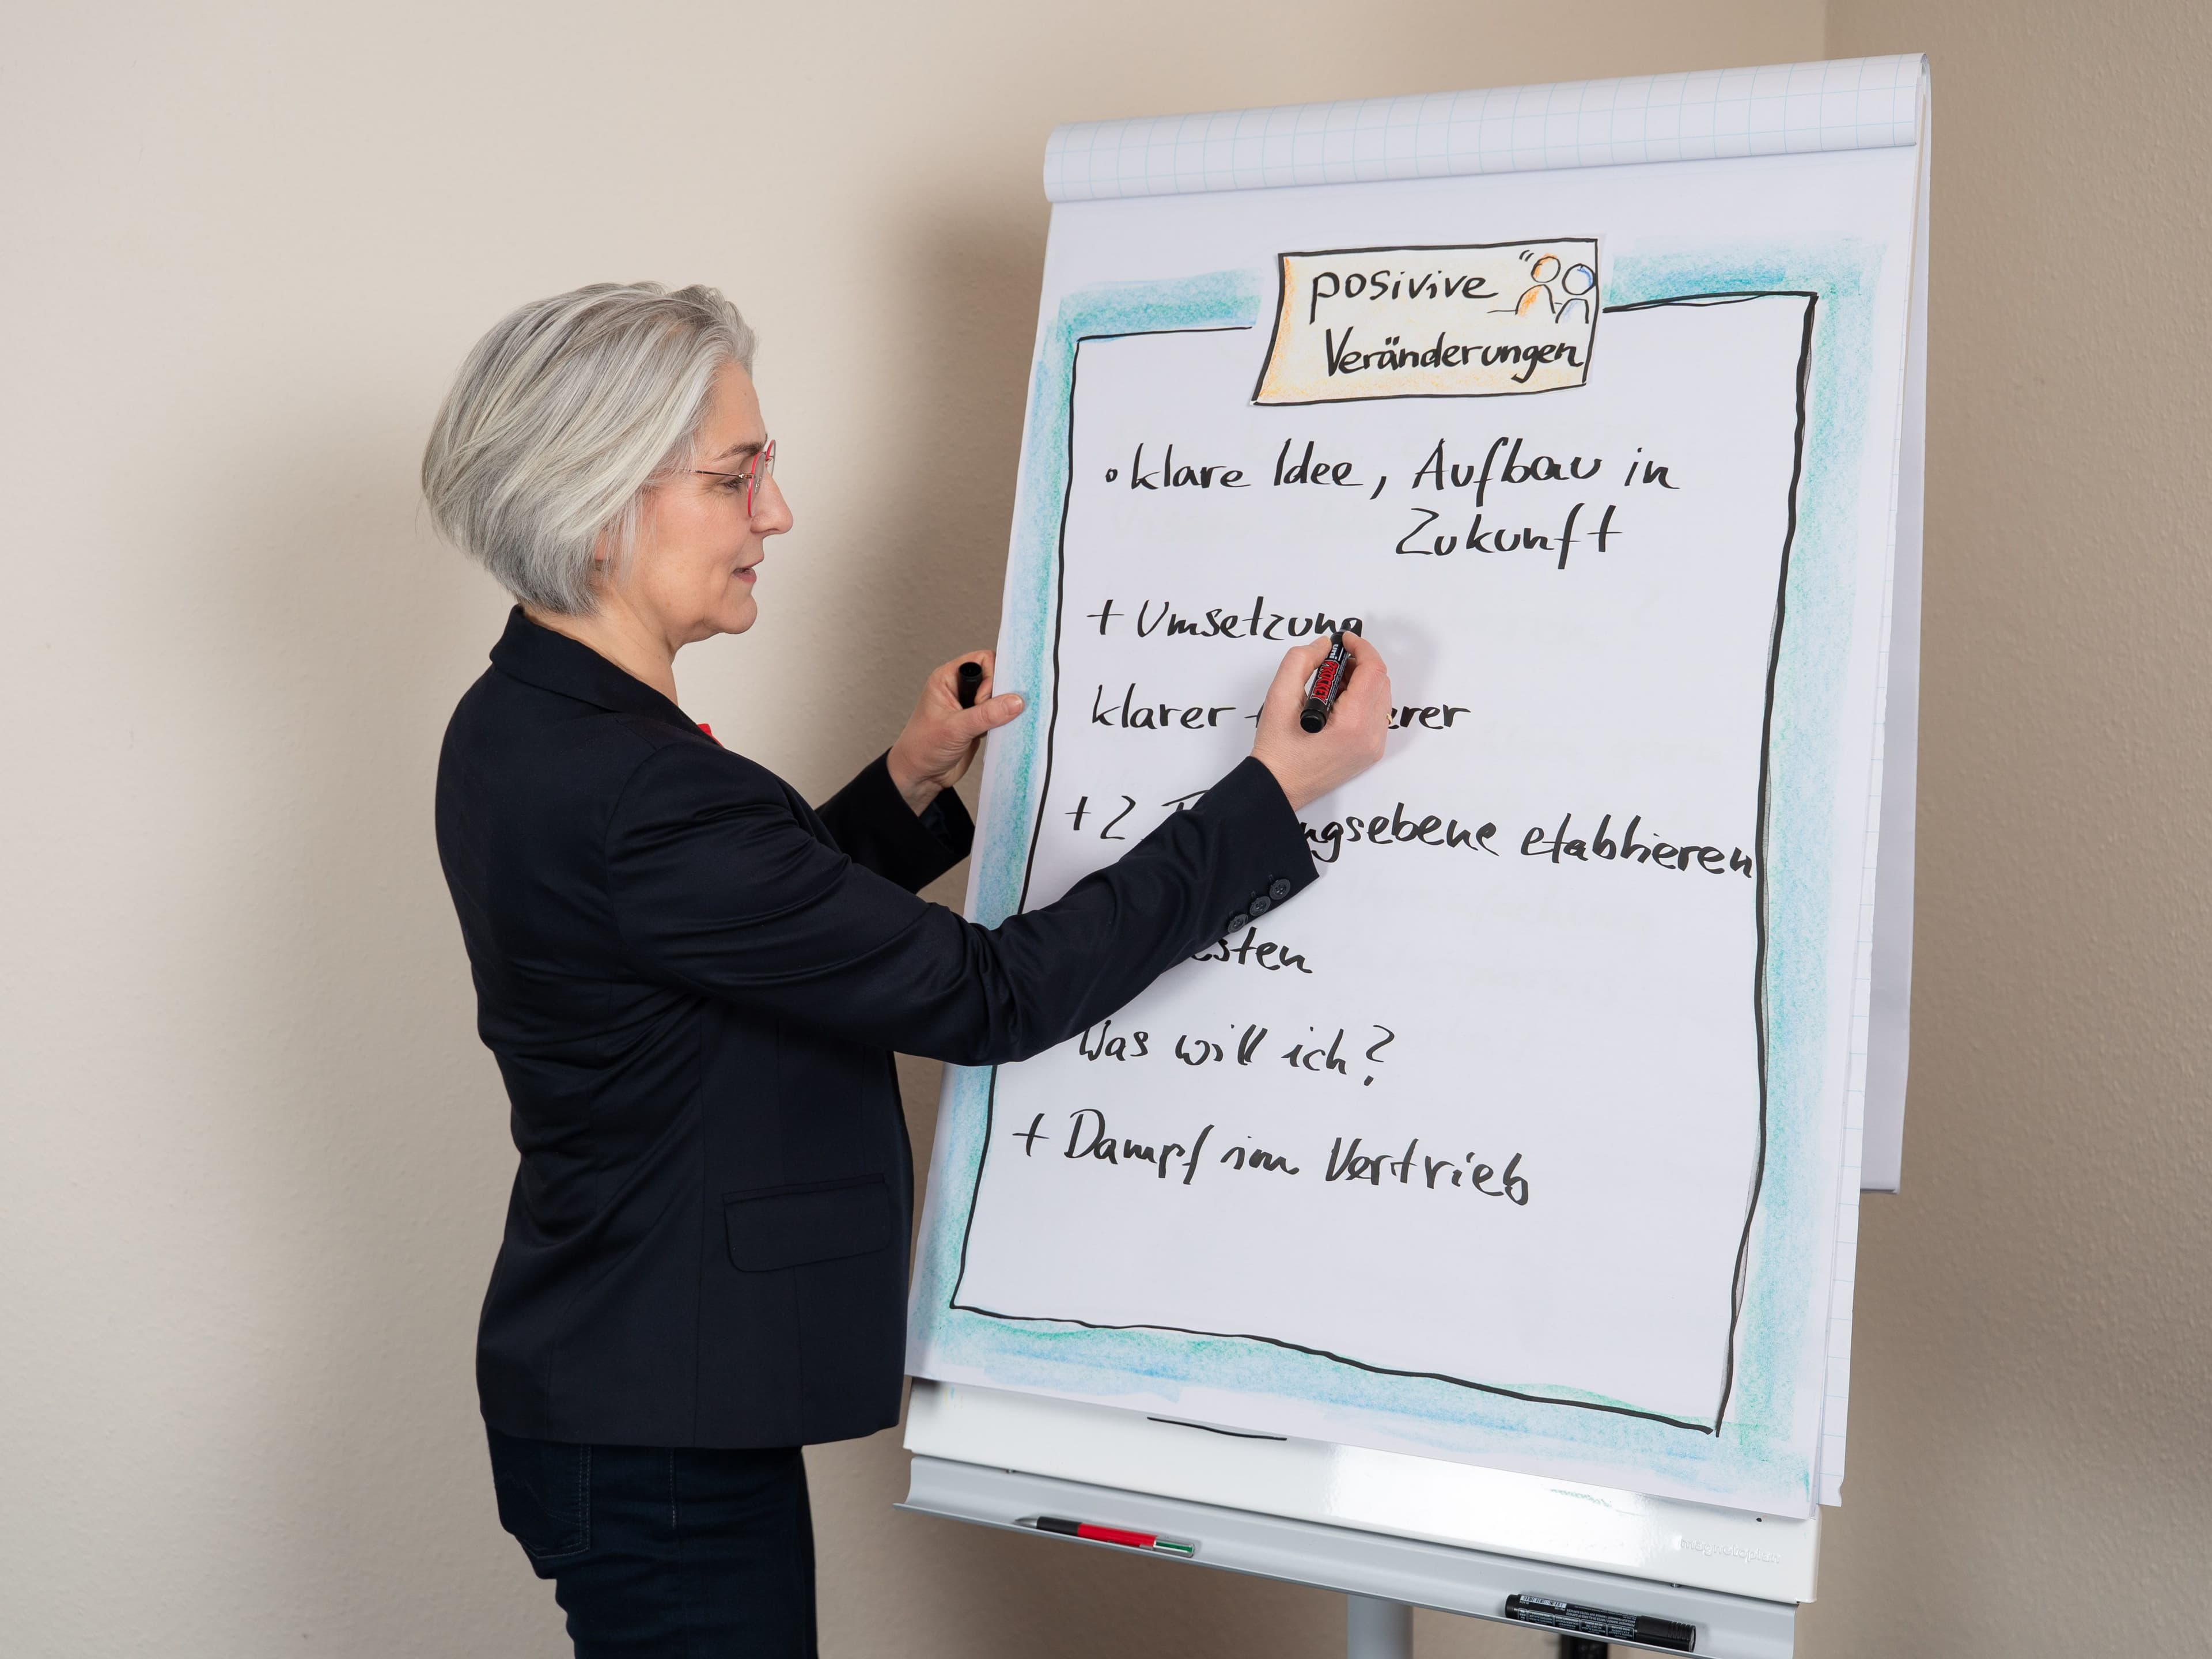 posivive
Veränderungen
klare Idee, Aufbau in
Zukunft
+ Umsetzung
klarer
+ 2
etablieren
Was will ich?
+ Dampf im Vertrieb
uni
magnetoplan